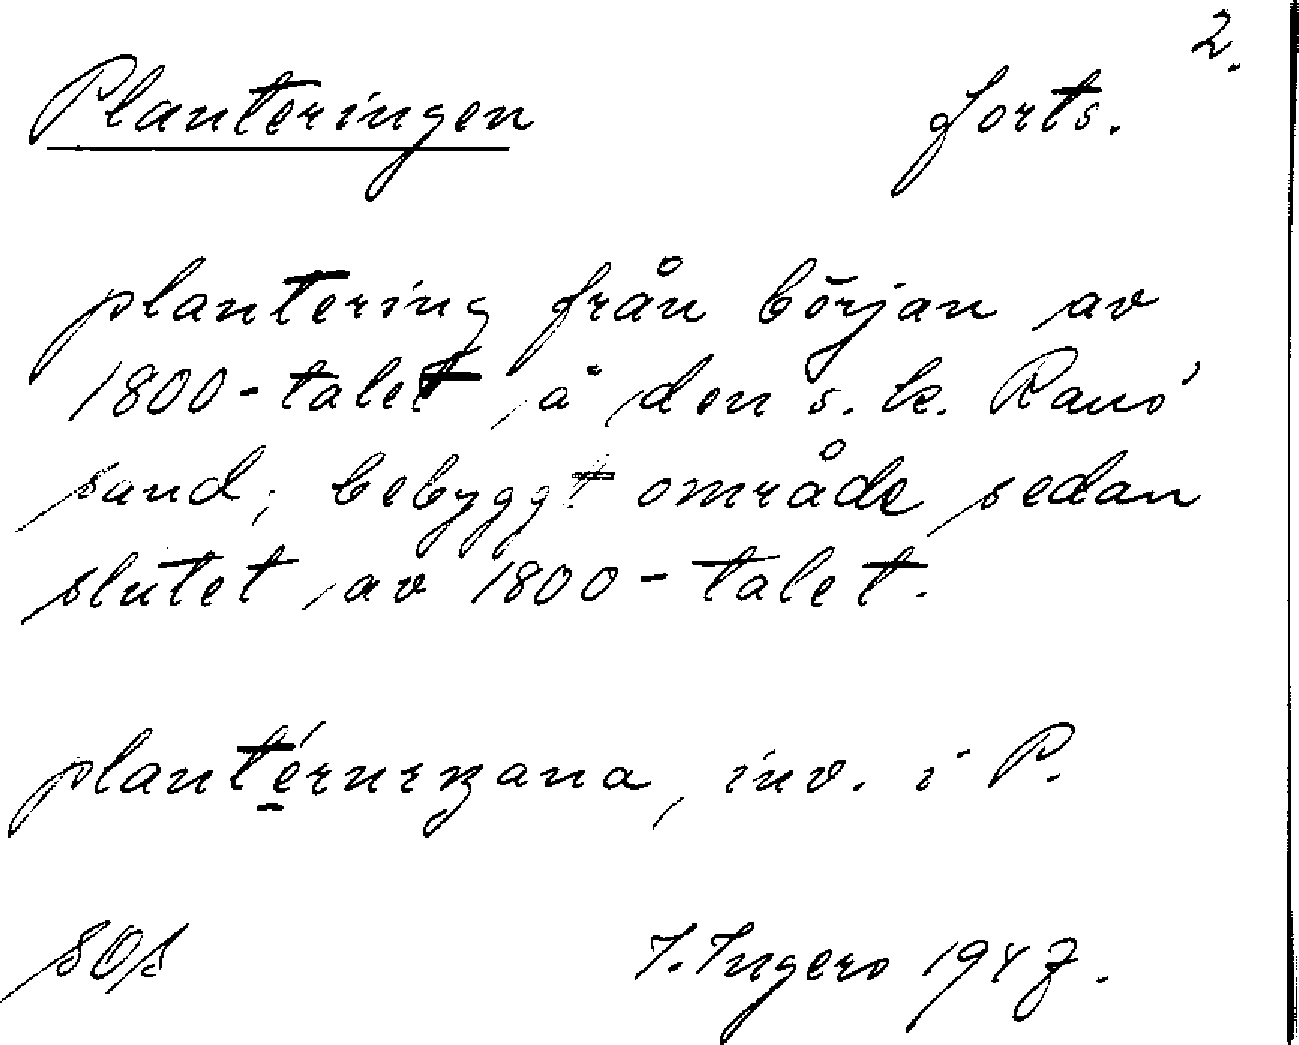 2.
Planteringen forts.
plantering från början av
1800-talet, å den s. k. Ranö
sand; bebyggt område sedan
slutet av 1800-talet.
inv. i P.
I. Ingers 1947.